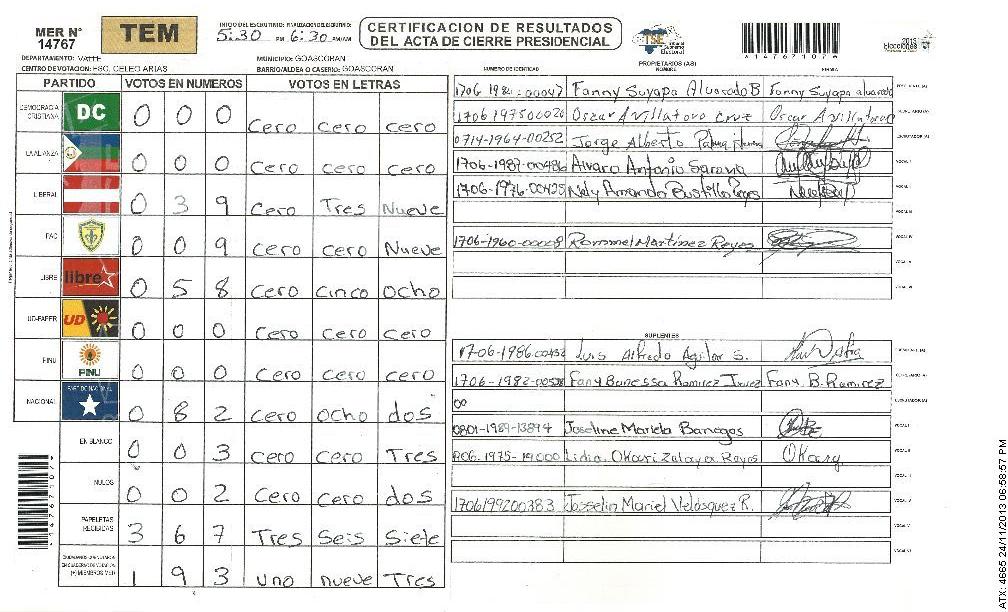 MER N° 14767
TEM
INICIO DEL ESCRUTINIO: FINALIZACION DEL ESCRUTINIO:
5:30 PM 6:30 PM/AM
CERTIFICACION DE RESULTADOS
DEL ACTA DE CIERRE PRESIDENCIAL
TSE
Tribunal Supremo Electoral
2013
Elecciones
*14767107*
DEPARTAMENTO: VALLE
MUNICIPIO: GOASCORAN
CENTRO DE VOTACION: ESC. CELEO ARIAS
BARRIO/ALDEA O CASERIO: GOASCORAN
PARTIDO VOTOS EN NUMEROS VOTOS EN LETRAS
DEMOCRACIA CRISTIANA DC 0 0 0 Cero Cero Cero
LA ALIANZA 0 0 0 Cero Cero Cero
LIBERAL 0 3 9 Cero Tres Nueve
PAC 0 0 9 Cero Cero Nueve
LIBRE libre 0 5 8 Cero Cinco Ocho
UD-FAPER UD 0 0 0 Cero Cero Cero
PINU PINU 0 0 0 Cero Cero Cero
NACIONAL PARTIDO NACIONAL 0 8 2 Cero Ocho dos
EN BLANCO 0 0 3 Cero Cero Tres
NULOS 0 0 2 Cero Cero dos
PAPELETAS RECIBIDAS 3 6 7 Tres Seis Siete
(+) MIEMBROS MER 1 9 3 uno nueve Tres
*14767107*
NUMERO DE IDENTIDAD PROPIETARIOS (AS) NOMBRE FIRMA
Fanny Suyapa Alvarado B Fanny Suyapa alvarado
1706197500020 Oscar Avillatoro Cruz Oscar Avillatoro
0714-1964-00252 Jorge Alberto
1706-1987-00486 Alvaro Antonio
1706-1976-00425 Nely Amanda Bustillo
1706-1960-00008 Rommel Martinez Reyes
SUPLENTES
Luis Alfredo Aguilar S.
Fany Banessa Ramirez Fany B. Ramirez
00
0801-1989-13894 Joseline Mariela Banegas
Lidia Okari Zalaya Reyes
1706199200383 Josselin Mariel Velásquez R.
ATX: 4665 24/11/2013 06:58:57 PM